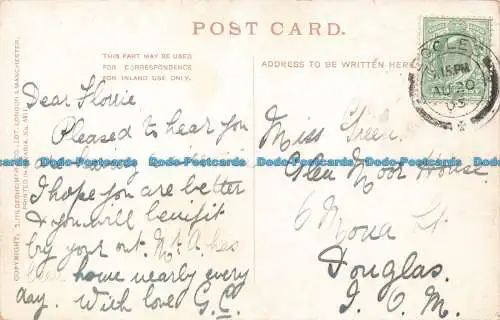 POST CARD.
THIS PART MAY BE USED
FOR CORRESPONDENCE
FOR INLAND USE ONLY.
ADDRESS TO BE WRITTEN HERE
Dear Florrie
Pleased to hear you
I hope you are better
& you will benifit
by your out. Mr A. has
home nearly every
day. With love G.C.
Miss Green
Glen Moor House
6 Mona St
Douglas.
I. O. M.
ECCLES
7.15 PM
AU 20
03
COPYRIGHT. S. HILDESHEIMER & CO., LDT. LONDON & MANCHESTER.
PRINTED IN
Dodo-Postcards Dodo-Postcards Dodo-Postcards Dodo-Postcards Dodo-Postcards Dodo-Postcards